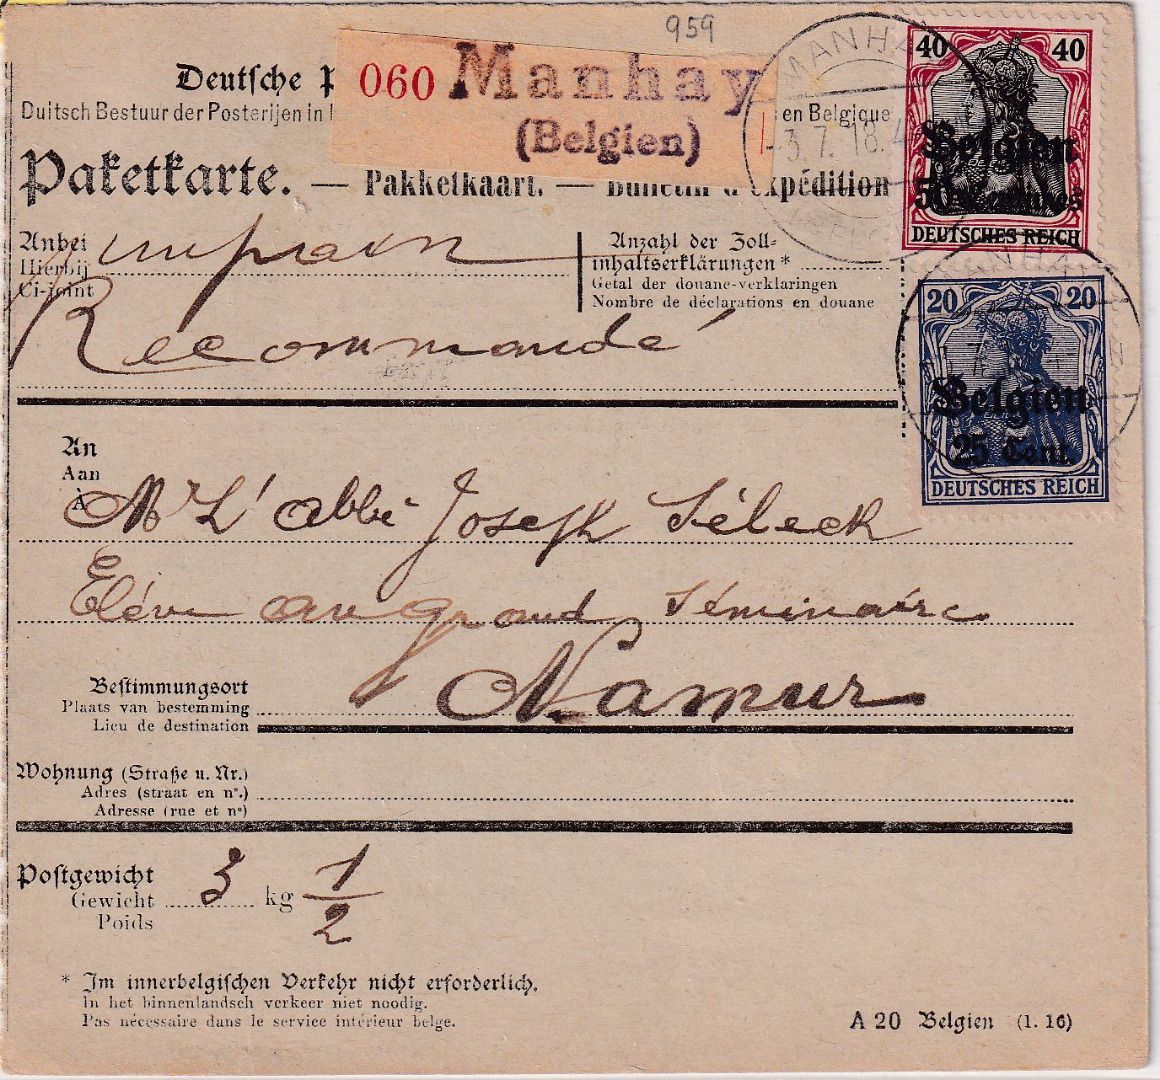 959
Deutsche P
060 Manhay
(Belgien)
Duitsch Bestuur der Posterijen in
en Belgique
Paketkarte. — Pakketkaart. — Bulletin d'expédition
MANHAY
3.7.18.4
40 40
Belgien
50 Centimes
DEUTSCHES REICH
Anbei
Hierbij
Ci-joint
un pain
Recommandé
Anzahl der Zoll-
inhaltserklärungen*
Getal der douane-verklaringen
Nombre de déclarations en douane
MANHAY
20 20
Belgien
25 Cent.
DEUTSCHES REICH
An
Aan
À
Mr L'abbé Joseph Séleck
Eléve au grand Séminaire
Namur
Bestimmungsort
Plaats van bestemming
Lieu de destination
Wohnung (Straße u. Nr.)
Adres (straat en n°.)
Adresse (rue et n°)
Postgewicht
Gewicht
Poids
3 kg 1/2
* Im innerbelgischen Verkehr nicht erforderlich.
In het binnenlandsch verkeer niet noodig.
Pas nécessaire dans le service intérieur belge.
A 20 Belgien (1. 16)